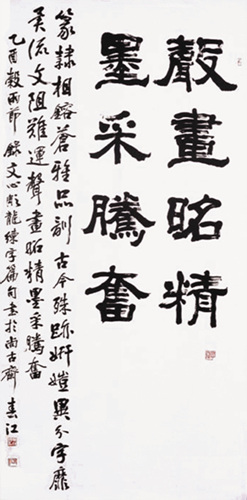 聲畫昭精
墨采騰奮
篆隸相鎔蒼雅品訓古今殊跡妍媸異分字靡
異流文阻難運聲畫昭精墨采騰奮
乙酉穀雨節錄文心彫龍練字篇句書於尚古齋春江